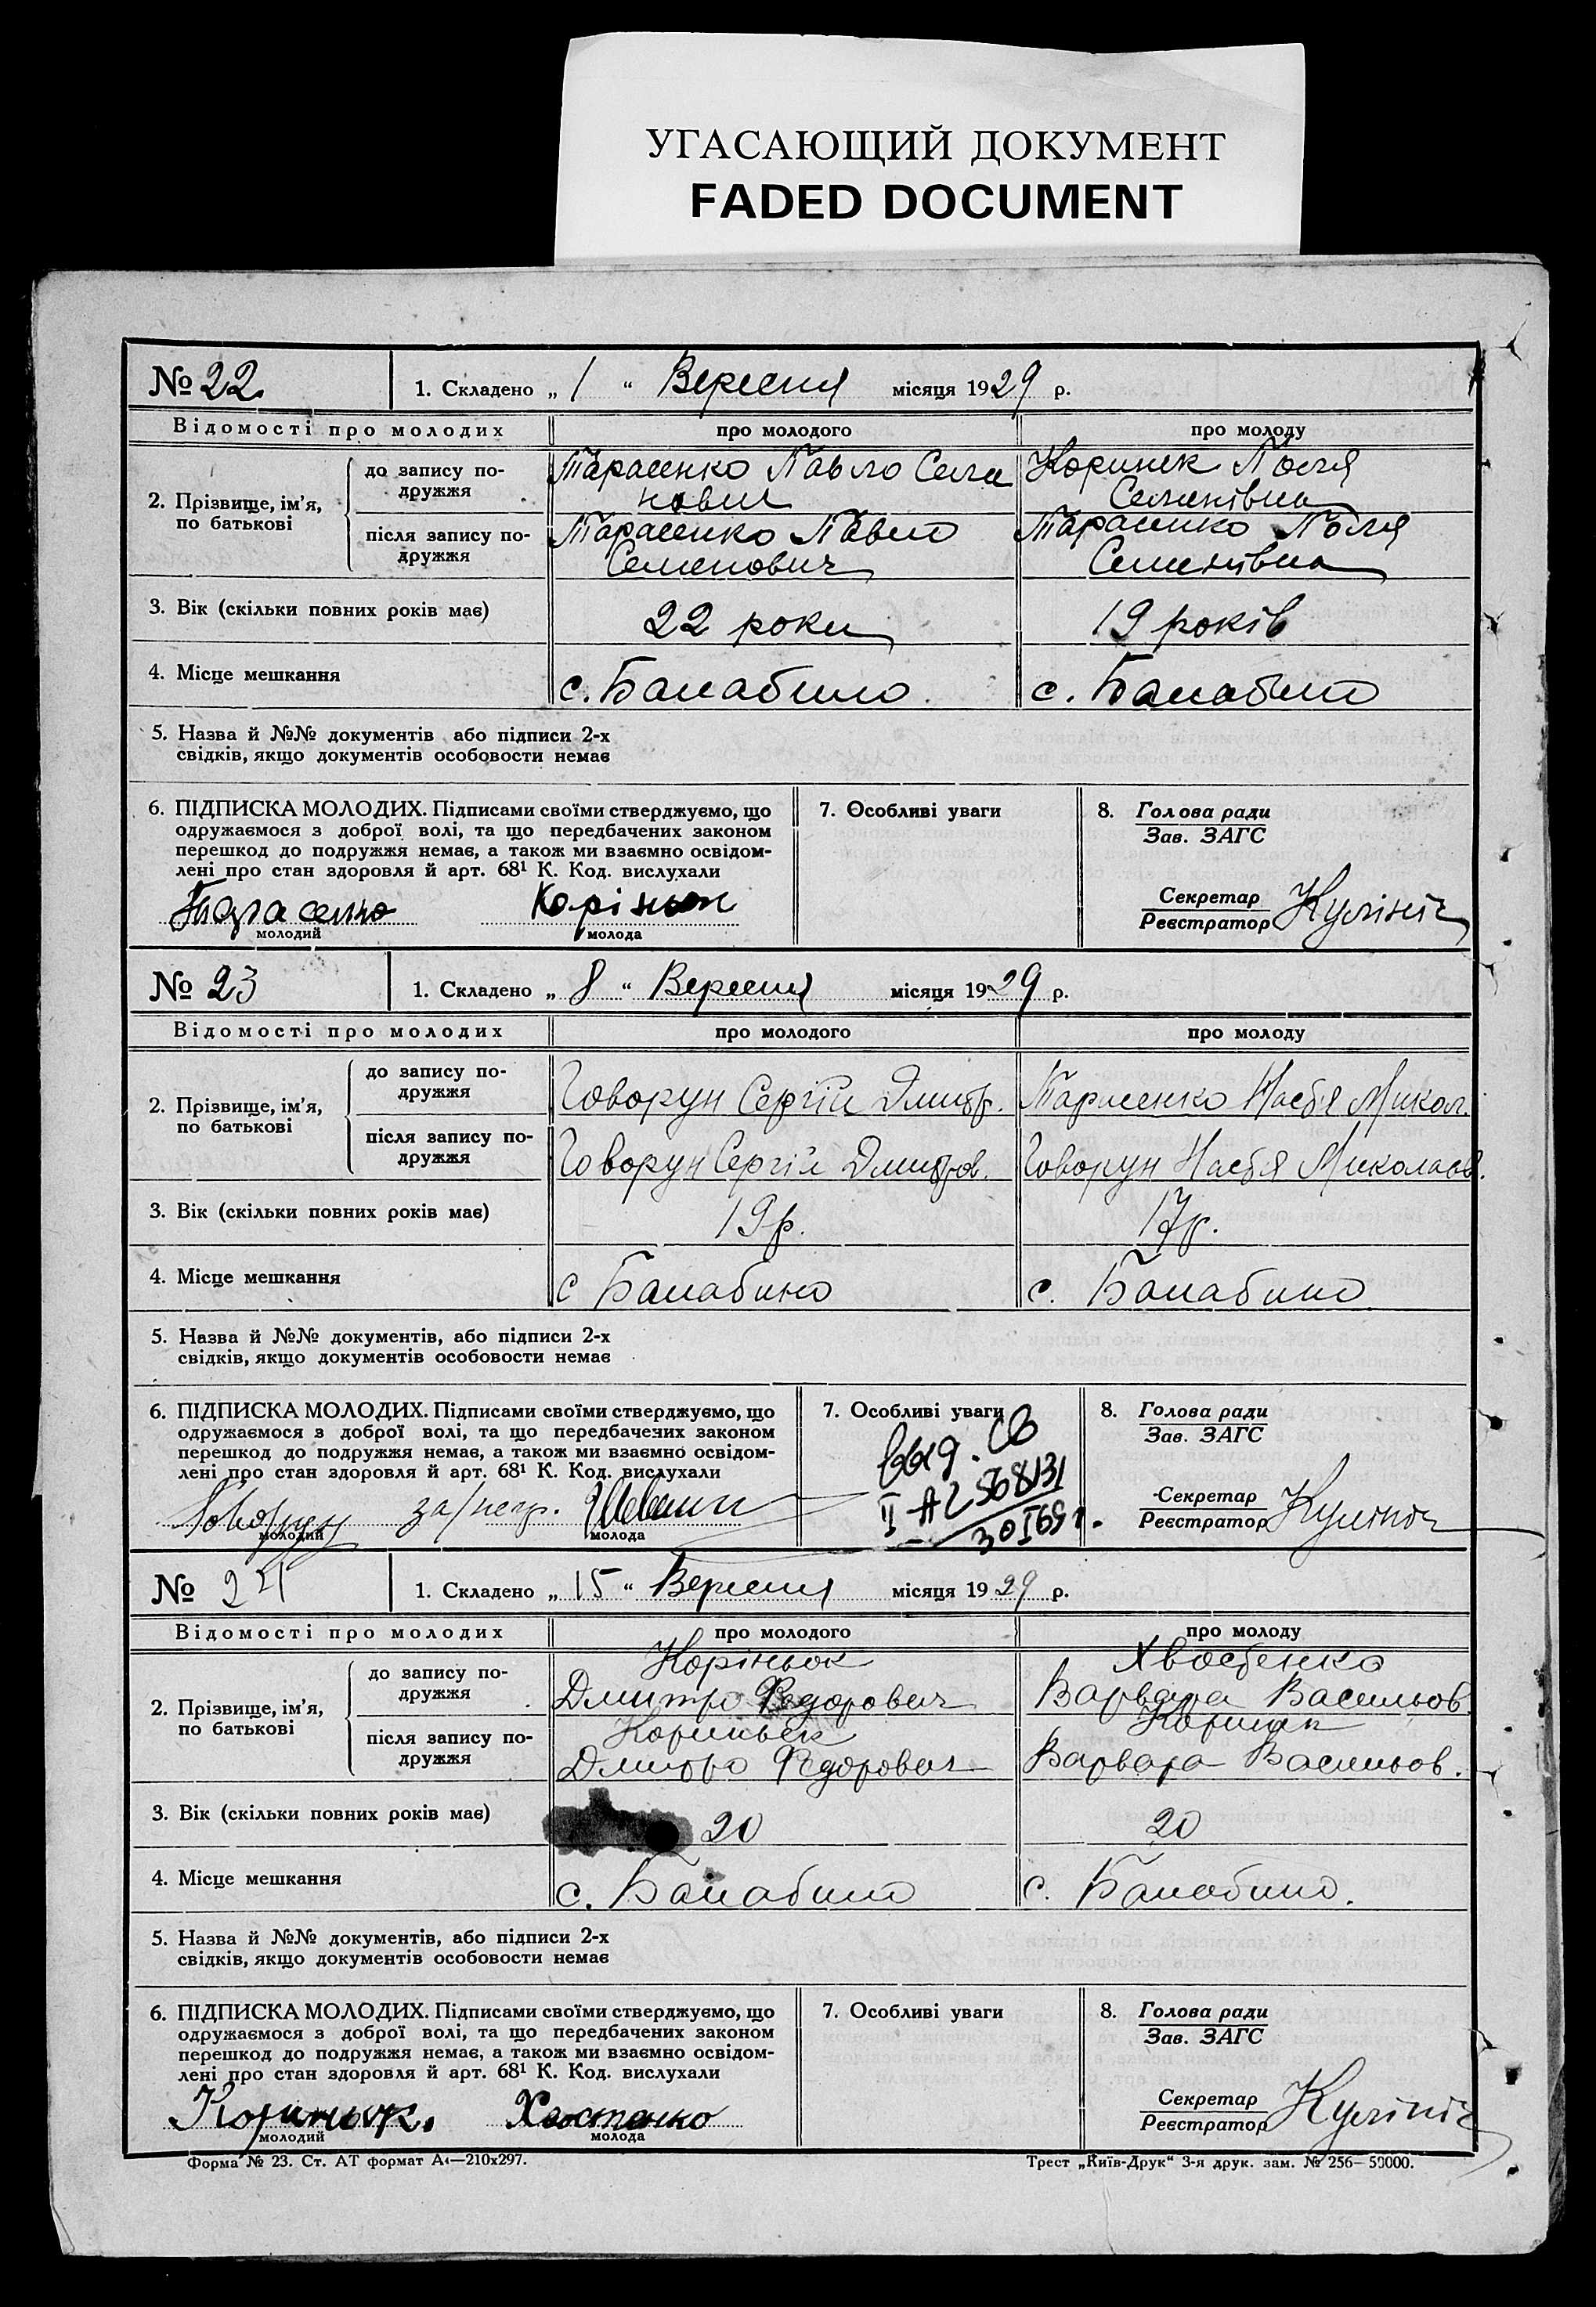 УГАСАЮЩИЙ ДОКУМЕНТ
FADED DOCUMENT
№ 22. 1. Складено „ 1 “ Вересня місяця 1929 р.
Відомості про молодих про молодого про молоду
2. Прізвище, ім’я, по батькові
до запису подружжя
Тарасенко Павло Семе
нович
Коринек Поля
Семенівна
після запису подружжя
Тарасенко Павло
Семенович
Тарасенко Поля
Семенівна
3. Вік (скільки повних років має) 22 роки 19 років
4. Місце мешкання с. Балабино. с. Балабино
5. Назва й №№ документів або підписи 2-х
свідків, якщо документів особовости немає
6. ПІДПИСКА МОЛОДИХ. Підписами своїми стверджуємо, що
одружаємося з доброї волі, та що передбачених законом
перешкод до подружжя немає, а також ми взаємно освідом-
лені про стан здоровля й арт. 68¹ К. Код. вислухали
Тарасенко Коріньок
молодий молода
7. Особливі уваги
8. Голова ради
Зав. ЗАГС
Секретар
Реєстратор Кулініч
№ 23 1. Складено „ 8 “ Вересня місяця 1929 р.
Відомості про молодих про молодого про молоду
2. Прізвище, ім’я, по батькові
до запису подружжя
Говорун Сергій Дмитр. Тарасенко Настя Микол.
після запису подружжя
Говорун Сергій Дмитров. Говорун Настя Миколаєв.
3. Вік (скільки повних років має) 19 р. 17 р.
4. Місце мешкання с Балабино с. Балабино
5. Назва й №№ документів, або підписи 2-х
свідків, якщо документів особовости немає
6. ПІДПИСКА МОЛОДИХ. Підписами своїми стверджуємо, що
одружаємося з доброї волі, та що передбачених законом
перешкод до подружжя немає, а також ми взаємно освідом-
лені про стан здоровля й арт. 68¹ К. Код. вислухали
Говорун за/негр.
молодий молода
7. Особливі уваги
выд. св
II-АГ 568131
30 I 69 г.
8. Голова ради
Зав. ЗАГС
Секретар
Реєстратор Кулініч
№ 24 1. Складено „ 15 “ Вересня місяця 1929 р.
Відомості про молодих про молодого про молоду
2. Прізвище, ім’я, по батькові
до запису подружжя
Коріньок
Дмитро Федорович
Хвостенко
Варвара Васильов.
після запису подружжя
Кориньек
Дмитро Федорович
Коринек
Варвара Васильов.
3. Вік (скільки повних років має) 20 20
4. Місце мешкання с. Балабино с. Балабино.
5. Назва й №№ документів, або підписи 2-х
свідків, якщо документів особовости немає
6. ПІДПИСКА МОЛОДИХ. Підписами своїми стверджуємо, що
одружаємося з доброї волі, та що передбачених законом
перешкод до подружжя немає, а також ми взаємно освідом-
лені про стан здоровля й арт. 68¹ К. Код. вислухали
Кориньок. Хвостенко
молодий молода
7. Особливі уваги
8. Голова ради
Зав. ЗАГС
Секретар
Реєстратор Кулініч
Форма № 23. Ст. АТ формат А₄—210х297. Трест „Київ-Друк“ 3-я друк. зам. № 256—50000.